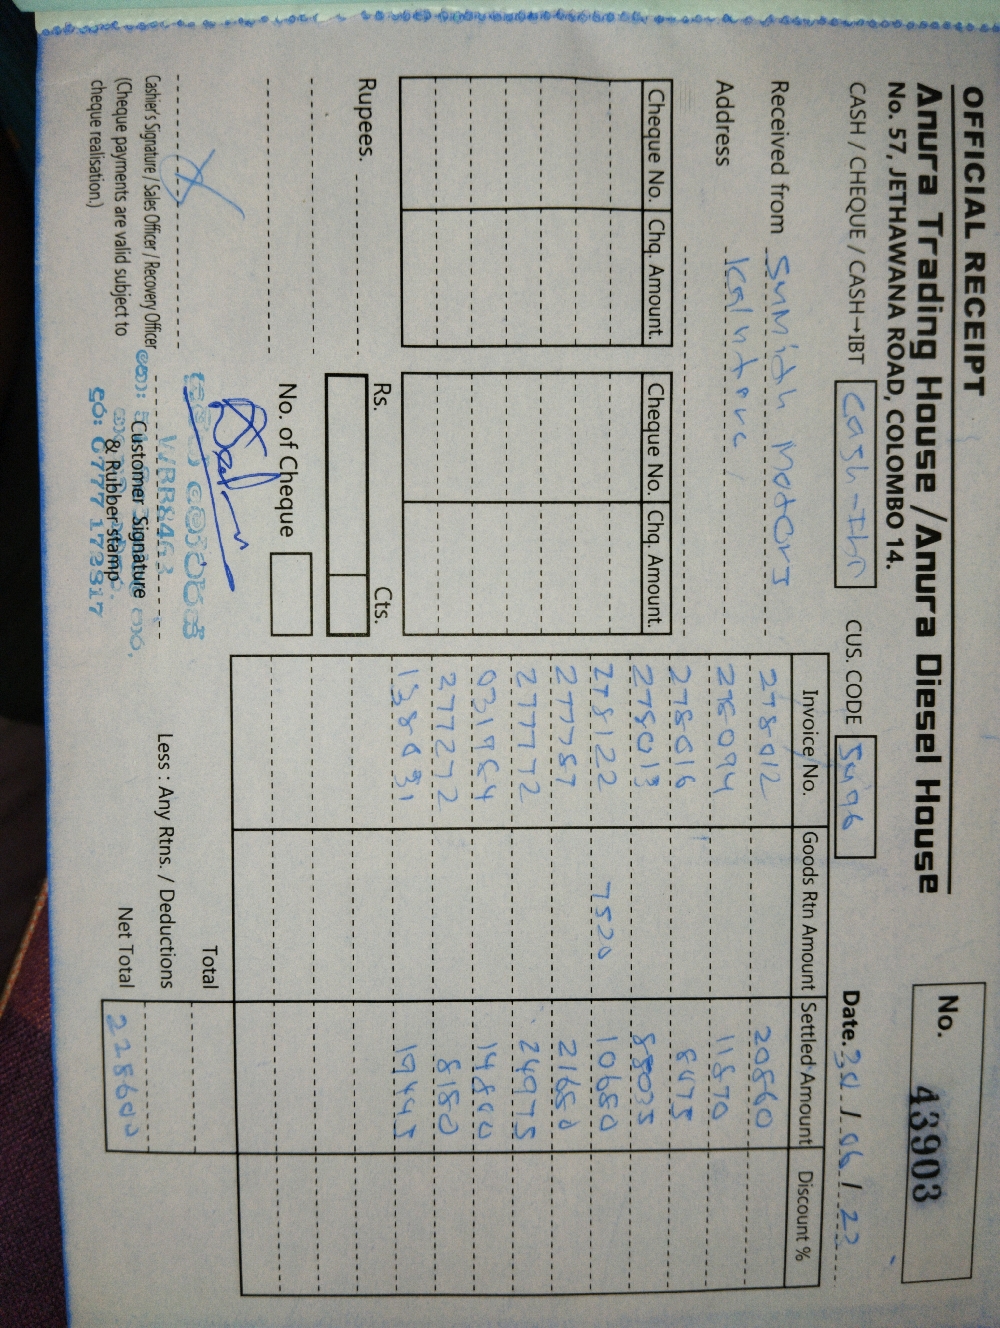 OFFICIAL RECEIPT
Anura Trading House / Anura Diesel House
No. 57, JETHAWANA ROAD, COLOMBO 14.
No. 43903
CASH / CHEQUE / CASH→IBT Cash
CUS. CODE
Date. 30 / 06 / 23
Received from Sumith Motors
Address Kalutara
Cheque No. Chq. Amount. Cheque No. Chq. Amount.
Invoice No. Goods Rtn Amount Settled Amount Discount %
278012 20860
278094 11870
278016 8475
278013 88035
278122 7520 10680
277787 21680
277772 24975
031984 14800
277272 8180
138831 19445
Rupees.
Rs. Cts.
No. of Cheque
Total
Less : Any Rtns. / Deductions
Net Total 228600
WBR8463
Cashier's Signature / Sales Officer / Recovery Officer
(Cheque payments are valid subject to
cheque realisation.)
Customer Signature
& Rubber stamp
0777 172917